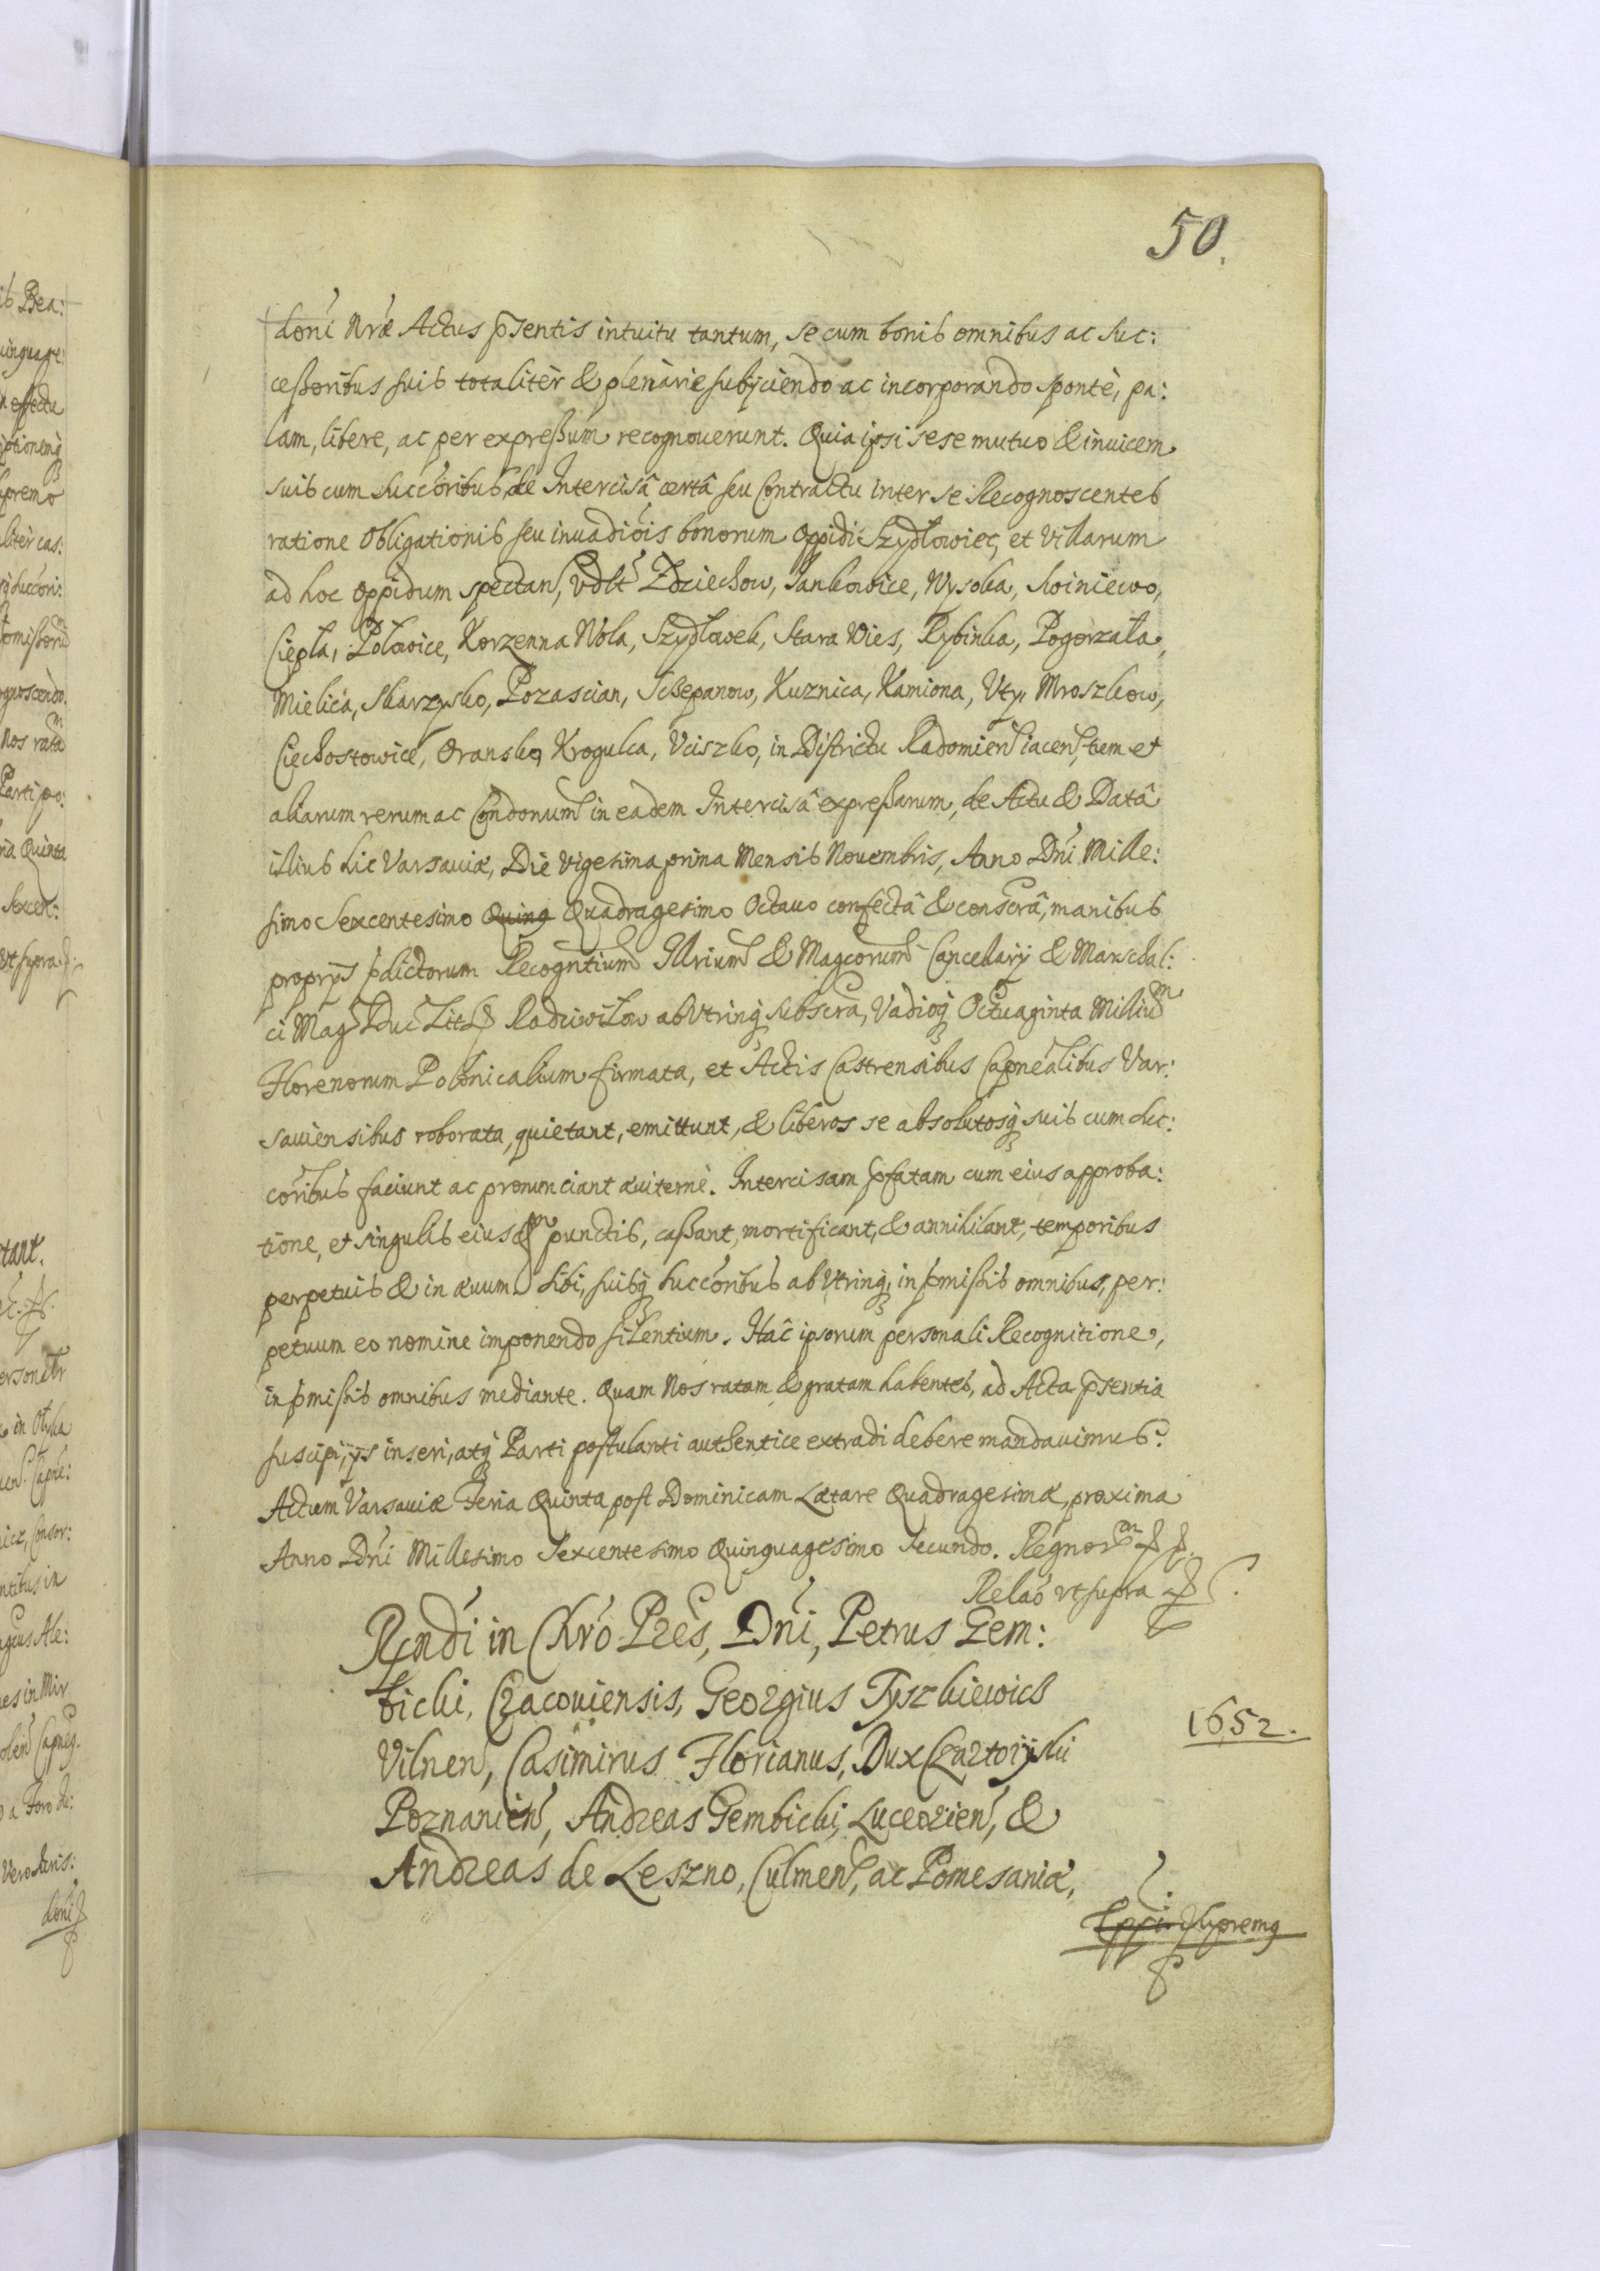 50.
doni Nrae Actus psentis intuitu tantum, se cum bonis omnibus ac Suc:
ceßoribus suis totaliter & plenarie subijciendo ac incorporando sponte, pa:
lam, libere, ac per expreßum recognouerunt. Quia ipsi sese mutuo & inuicem
suis cum Succoribus, de Intercisâ certâ seu Contractu inter se Recognoscentes
ratione Obligationis seu inuadiois bonorum Oppidi Szydłowiec, et Villarum
ad hoc Oppidum spectan, vdlt Zdziechow, Jankowice, Wysoka, Swiniewo,
Ciepla, Łolowice, Korzenna Wola, Szydłowek, Stara Wies, Rybinka, Pogorzała,
Mielica, Skarzysko, Pozascian, Sczepanow, Kuznica, Kamiona, Vty, Mroszkow,
Ciechostowice, Oransko, Krogulca, Vciszko, in Districtu Radomien iacen, tum et
aliarum rerum ac Condonum in eadem Intercisâ expreßarum, de Actu & Datâ
illius hic Varsauiae, Die Vigesima prima Mensis Nouembris, Anno Dni Mille:
simo Sexcentesimo Quing Quadragesimo Octauo confectâ & conscrâ, manibus
proprys pdictorum Recogntium Illrium & Magcorum Cancellarij & Marschal:
ci Mag Duc Lit Radziwiłow ab vtrinq subscra, Vadioq Octuaginta Millium
Florenorum Polonicalium firmata, et Actis Castrensibus Capnealibus Var:
sauiensibus roborata, quietant, emittunt, & liberos se absolutosq suis cum Suc:
coribus faciunt ac pronunciant auiterne. Intercisam pfatam cum eius approba:
tione, et singulis eiusdem punctis, caßant, mortificant, & annihilant, temporibus
perpetuis & in aeuum. Sibi, suisq Succoribus ab vtrinq, in pmißis omnibus, per:
petuum eo nomine imponendo silentium. Hac ipsorum personali Recognitione,
in pmißis omnibus mediante. Quam Nos ratam & gratam habentes, ad Acta psentia
suscipi, ijs inseri, atq Parti postulanti authentice extradi debere mandauimus.
Actum Varsauiae Feria Quinta post Dominicam Laetare Quadragesimae, proxima
Anno Dni Millesimo Sexcentesimo Quinquagesimo Secundo. Regnorum
Relao vt supra
Rndi in Chro Pres, Dni, Petrus Gem:
bicki, Cracouiensis, Georgius Tyszkiewicz
Vilnen, Casimirus Florianus, Dux Czartoryski
Poznanien, Andreas Gembicki, Luceorien, &
Andreas de Leszno, Culmen, ac Pomesaniae,
1652.
Eppi Supremq